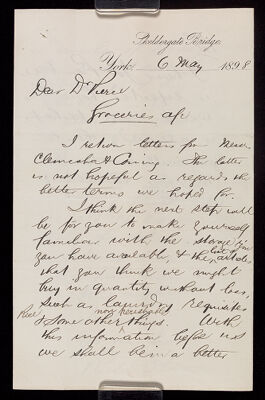 Skeldergate Bridge,
York, 6 May 1898
Dear Dr Pierce
Groceries a/c
I return letters from Messrs
Clemesha & Coning. The latter
is not hopeful as regards the
better terms we hoped for.
I think the next step will
be for you to make yourself
familiar with the storage you
you have available & the articles
that you think we might
buy in quantity without loss,
such as laundry requisites
Rice & some other non perishable things. With
this information before us
we shall be in a better